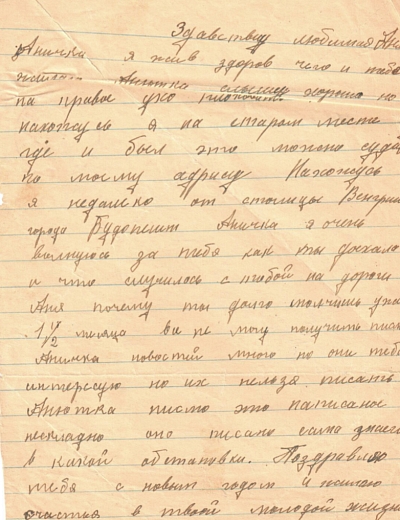 Здравствуй любимая Аня
Аничка я жив здоров чего и тебе
желаю. Анютка слышу хорошо но
на правое ухо
нахожусь я на старом месте
где и был это можно суди
по моему адрису Нахожусь
я недалеко от столицы Венгрии
города Будопешт Аничка я очень
волнуюсь за тебя как ты доехала
и что случилось с тобой на дороги
Аня почему ты долго молчишь уже
1 1/2 месяца не могу получить писм
Аничка новостей много но они тебе
интерессую но их нельзя писать
Анютка писмо это написаное
нескладно оно писано сама знаеш
в какой обстановки. Поздравляю
тебя с новым годом и желаю
счастья в твоей молодой жизни